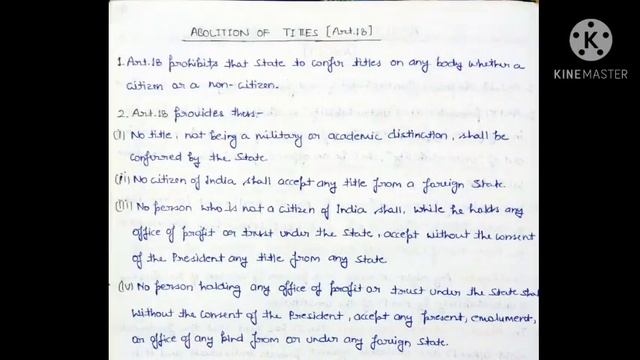 ABOLITION OF TITLES [Art.18]
1. Art.18 prohibits that State to confer titles on any body whether a
citizen or a non-citizen.
2. Art.18 provides thus:-
(i) No title, not being a military or academic distinction, shall be
conferred by the State
(ii) No citizen of India shall accept any title from a foreign State.
(iii) No person who is not a citizen of India shall, while he holds any
office of profit or trust under the State, accept without the consent
of the President any title from any State
(iv) No person holding any office of profit or trust under the State shall
without the consent of the President, accept any present, emolument,
or office of any kind from or under any foreign State.
K
KINEMASTER